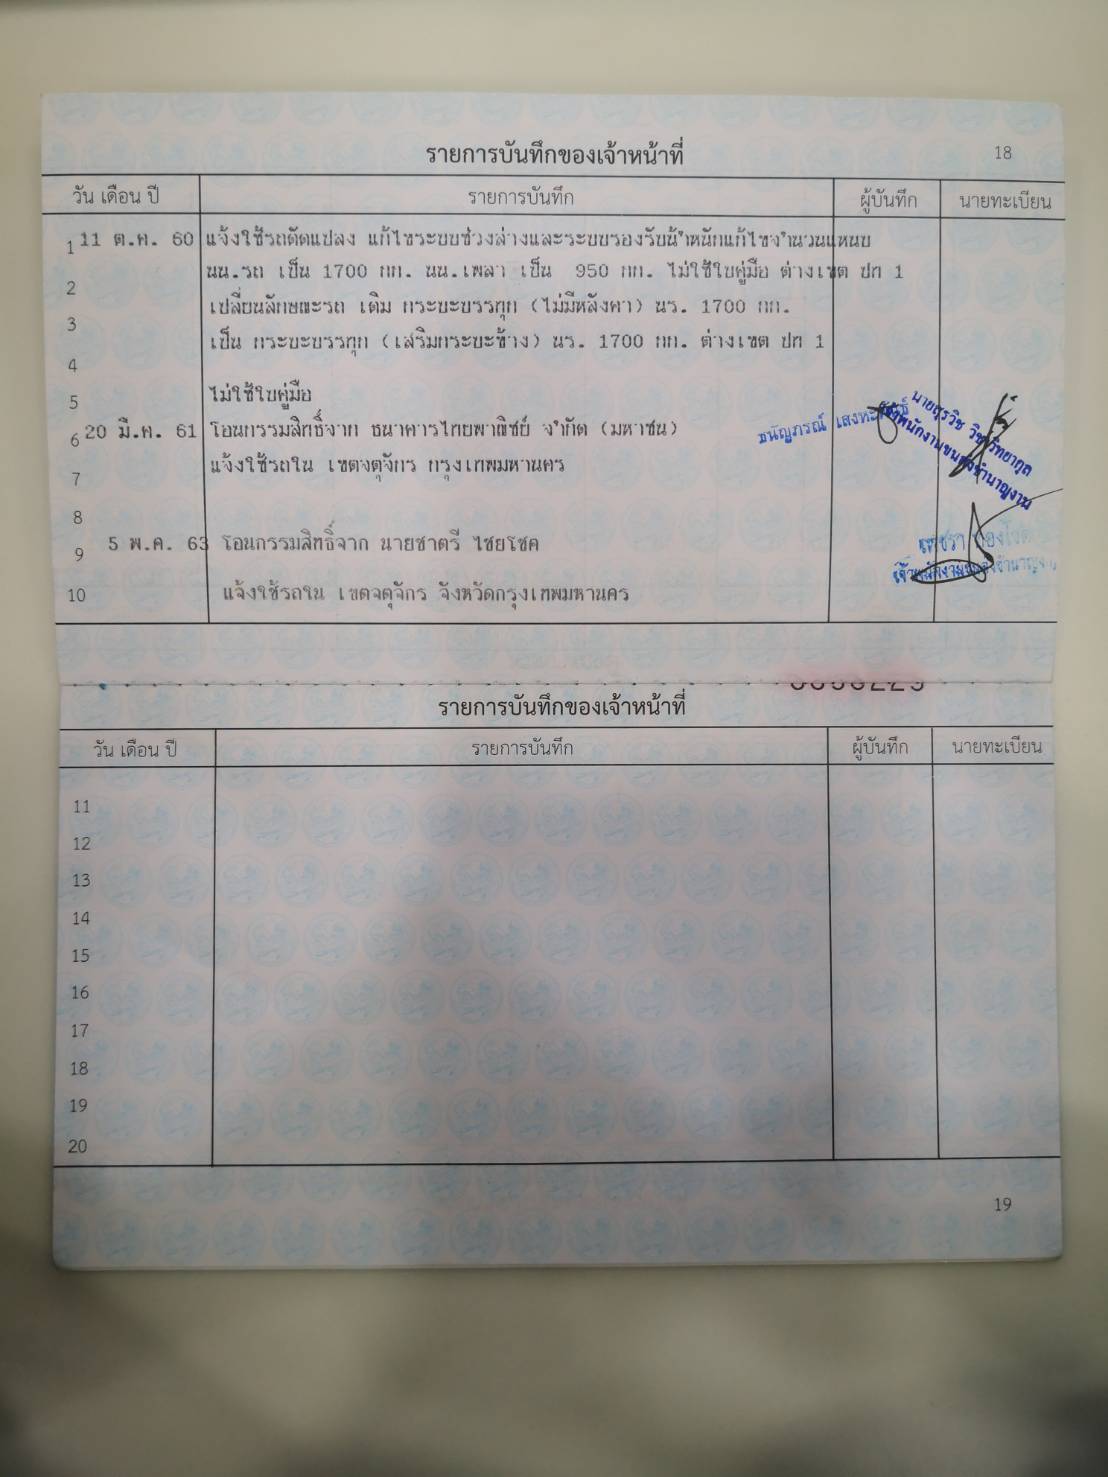 รายการบันทึกของเจ้าหน้าที่ 18
วัน เดือน ปี รายการบันทึก ผู้บันทึก นายทะเบียน
1 11 ต.ค. 60 แจ้งใช้รถดัดแปลง แก้ไขระบบช่วงล่างและระบบรองรับน้ำหนักแก้ไขจำนวนแหนบ
2 นน.รถ เป็น 1700 กก. นน.เพลา เป็น 950 กก. ไม่ใช้ใบคู่มือ ต่างเขต ปก 1
3 เปลี่ยนลักษณะรถ เดิม กระบะบรรทุก (ไม่มีหลังคา) นร. 1700 กก.
4 เป็น กระบะบรรทุก (เสริมกระบะข้าง) นร. 1700 กก. ต่างเขต ปก 1
5 ไม่ใช้ใบคู่มือ
6 20 มี.ค. 61 โอนกรรมสิทธิ์จาก ธนาคารไทยพาณิชย์ จำกัด (มหาชน)
7 แจ้งใช้รถใน เขตจตุจักร กรุงเทพมหานคร
8
9 5 พ.ค. 63 โอนกรรมสิทธิ์จาก นายชาตรี ไชยโชค
10 แจ้งใช้รถใน เขตจตุจักร จังหวัดกรุงเทพมหานคร
รายการบันทึกของเจ้าหน้าที่
วัน เดือน ปี รายการบันทึก ผู้บันทึก นายทะเบียน
11
12
13
14
15
16
17
18
19
20
19